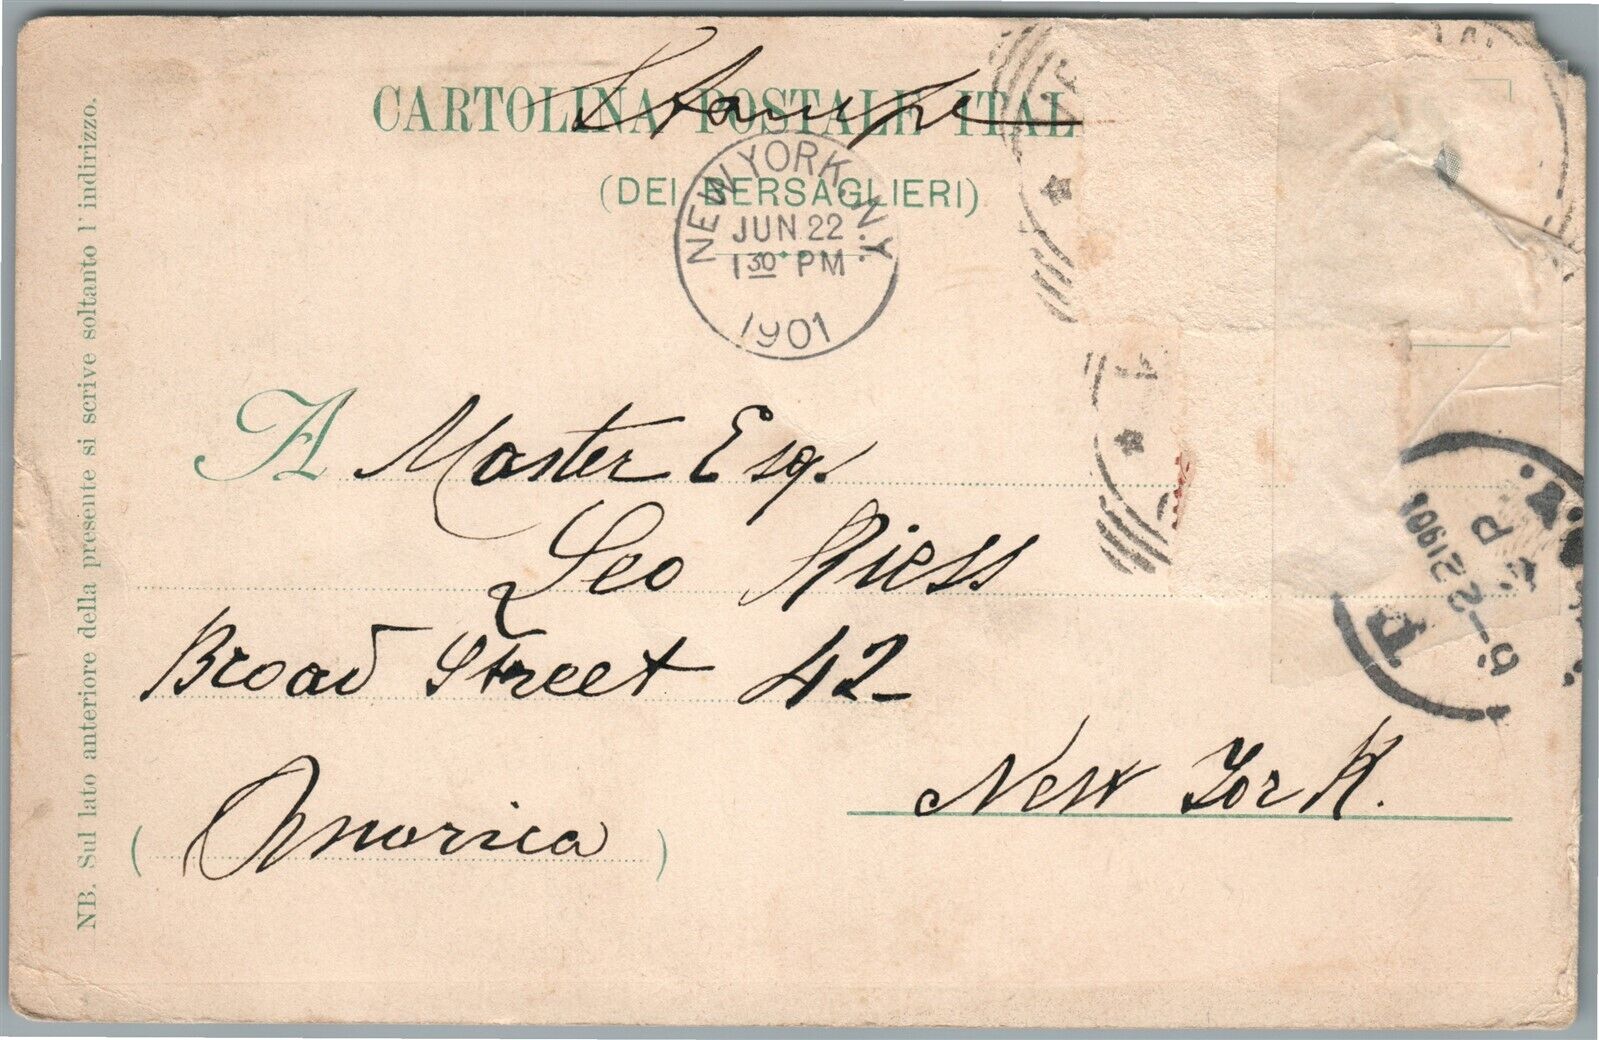 Stampe
CARTOLINA POSTALE ITAL
(DEI BERSAGLIERI)
NEW YORK, N.Y.
JUN 22
1 30 PM
1901
A Master Esq.
Leo Riess
Broad Street 42
New York.
(America)
NB. Sul lato anteriore della presente si scrive soltanto l'indirizzo.
6-22 1901
P